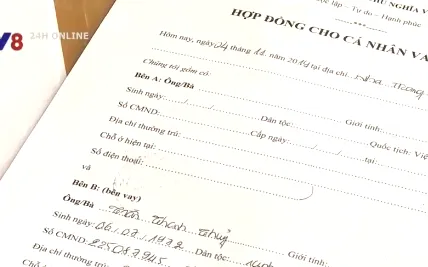 24H ONLINE
V8
NGHĨA V
lập - Tự do - Hạnh phúc
HỢP ĐỒNG CHO CÁ NHÂN VA
Hôm nay, ngày 24 tháng 11 năm 2014 tại địa chỉ Nha Trang
Chúng tôi gồm có:
Bên A: Ông/Bà
Sinh ngày: / / Giới tính:
Số CMND: Dân tộc: Quốc tịch: Việ
Địa chỉ thường trú: Cấp ngày / / tại:
Chỗ ở hiện tại:
Số điện thoại:
và
Bên B: (bên vay)
Ông/Bà Thanh
Sinh ngày: 1972 Giới tính:
Số CMND: Dân tộc:
Địa chỉ thường trú:
Chỗ